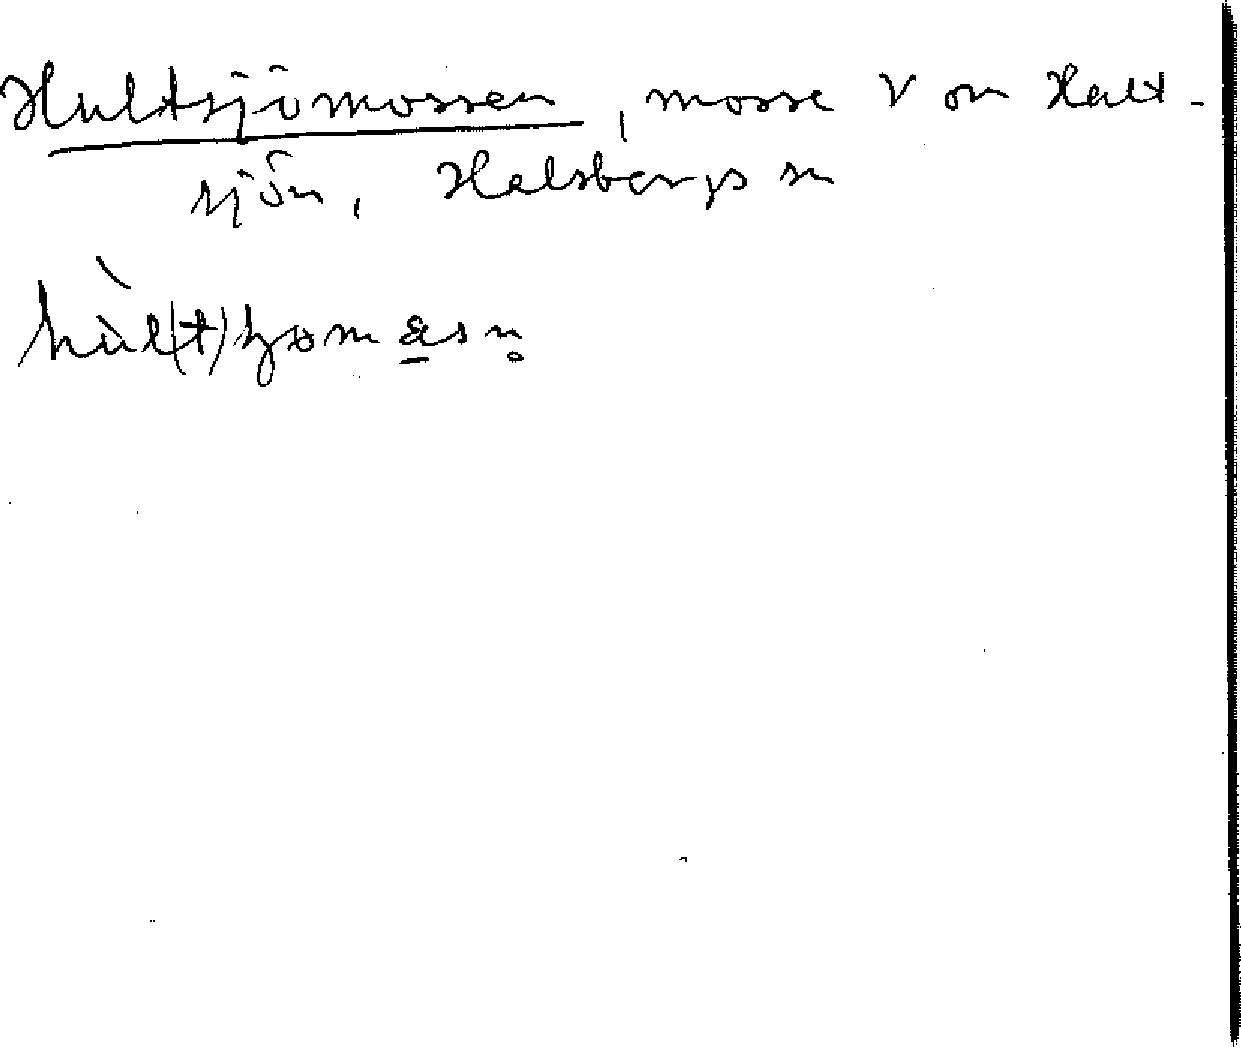 Hultsjömossen, mosse V om Hult-
sjön, Halsbergs sn